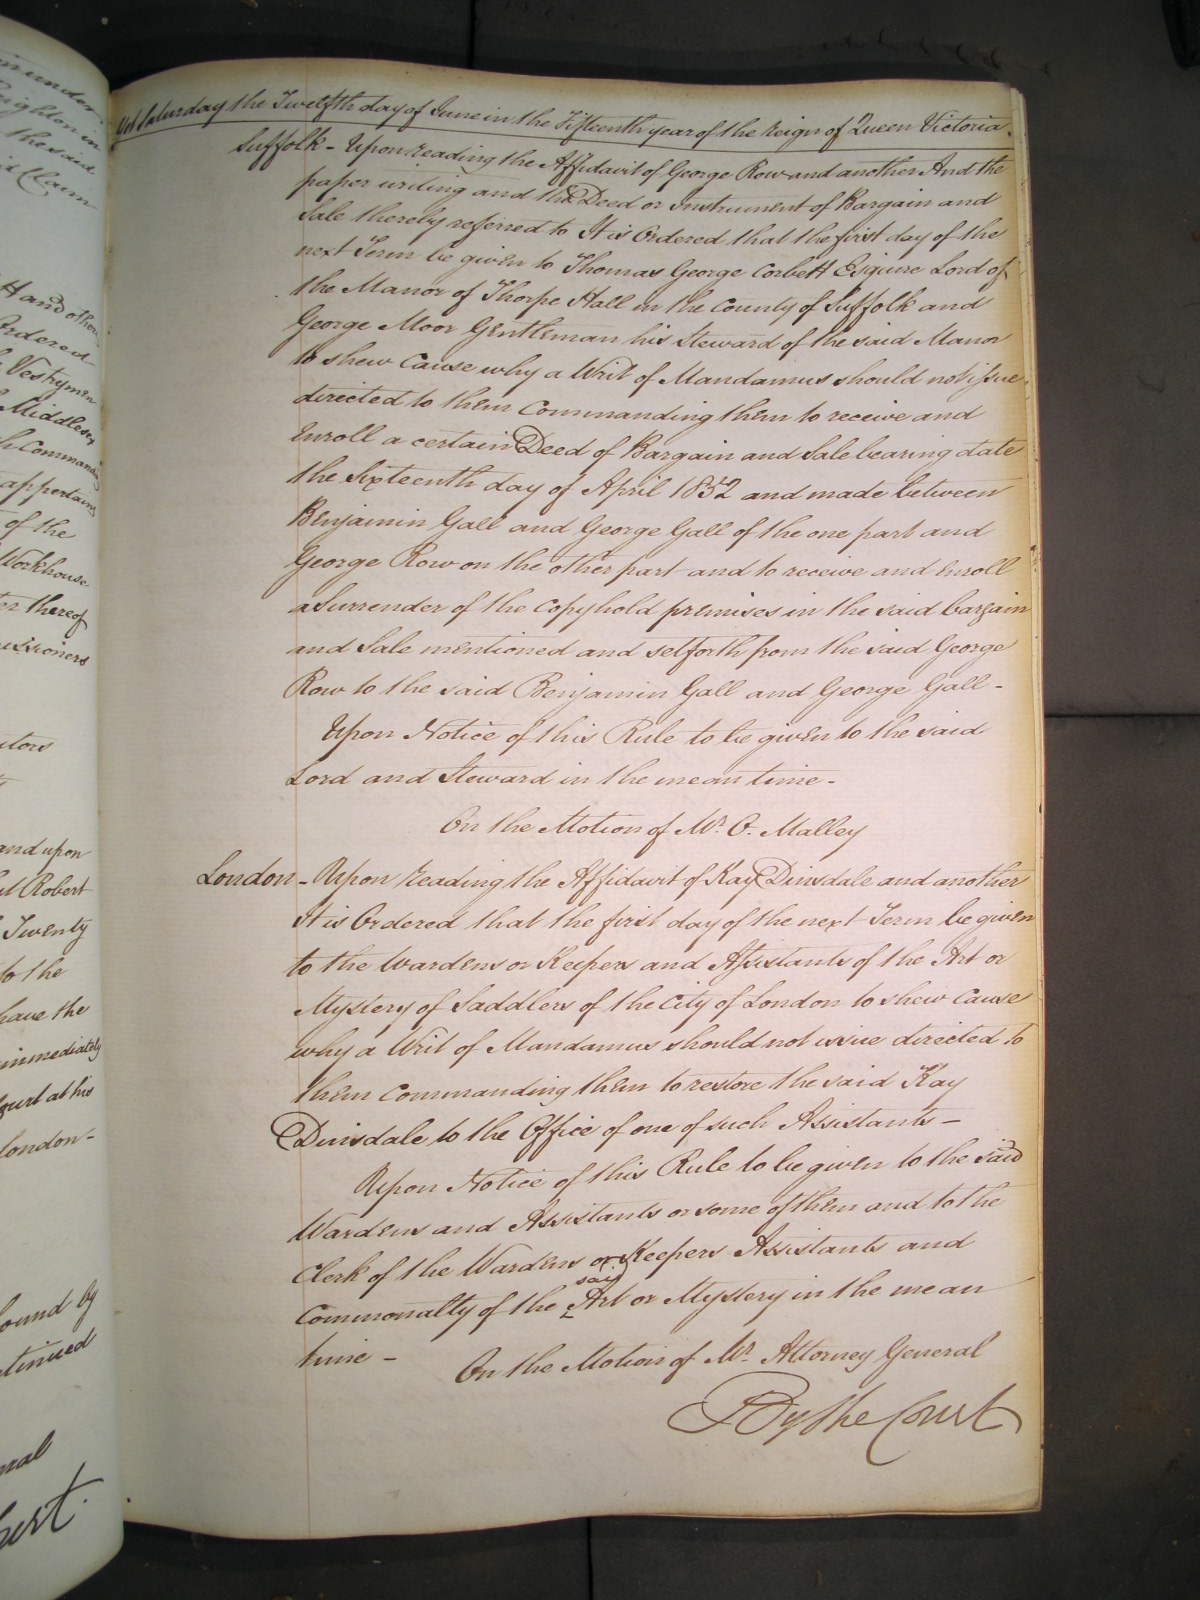 Yet Saturday the Twelfth day of June in the Fifteenth year of the Reign of Queen Victoria.
Suffolk - Upon reading the Affidavit of George Row and another And the
paper writing and the Deed or Instrument of Bargain and
Sale thereby referred to It is Ordered that the first day of the
next Term be given to Thomas George Corbett Esquire Lord of
the Manor of Thorpe Hall in the County of Suffolk and
George Moor Gentleman his Steward of the said Manor
to shew Cause why a Writ of Mandamus should not issue
directed to them Commanding them to receive and
Enroll a certain Deed of Bargain and Sale bearing date
the Sixteenth day of April 1852 and made between
Benjamin Gall and George Gall of the one part and
George Row on the other part and to receive and Enroll
a Surrender of the Copyhold premises in the said bargain
and Sale mentioned and set forth from the said George
Row to the said Benjamin Gall and George Gall -
Upon Notice of this Rule to be given to the said
Lord and Steward in the mean time -
On the Motion of Mr. O. Malley
London - Upon reading the Affidavit of Kay Dinsdale and another
It is Ordered that the first day of the next Term be given
to the Wardens or Keepers and Assistants of the Art or
Mystery of Saddlers of the City of London to shew Cause
why a Writ of Mandamus should not issue directed to
them Commanding them to restore the said Kay
Dinsdale to the Office of one of such Assistants -
Upon Notice of this Rule to be given to the said
Wardens and Assistants or some of them and to the
Clerk of the Wardens or Keepers Assistants and
Commonalty of the said Art or Mystery in the mean
time -
On the Motion of Mr. Attorney General
By the Court
and upon
Robert
Twenty
to the
have the
immediately
Court at his
London -
found by
Ordered
Vestrymen
Middlesex
of the
Workhouse
thereof